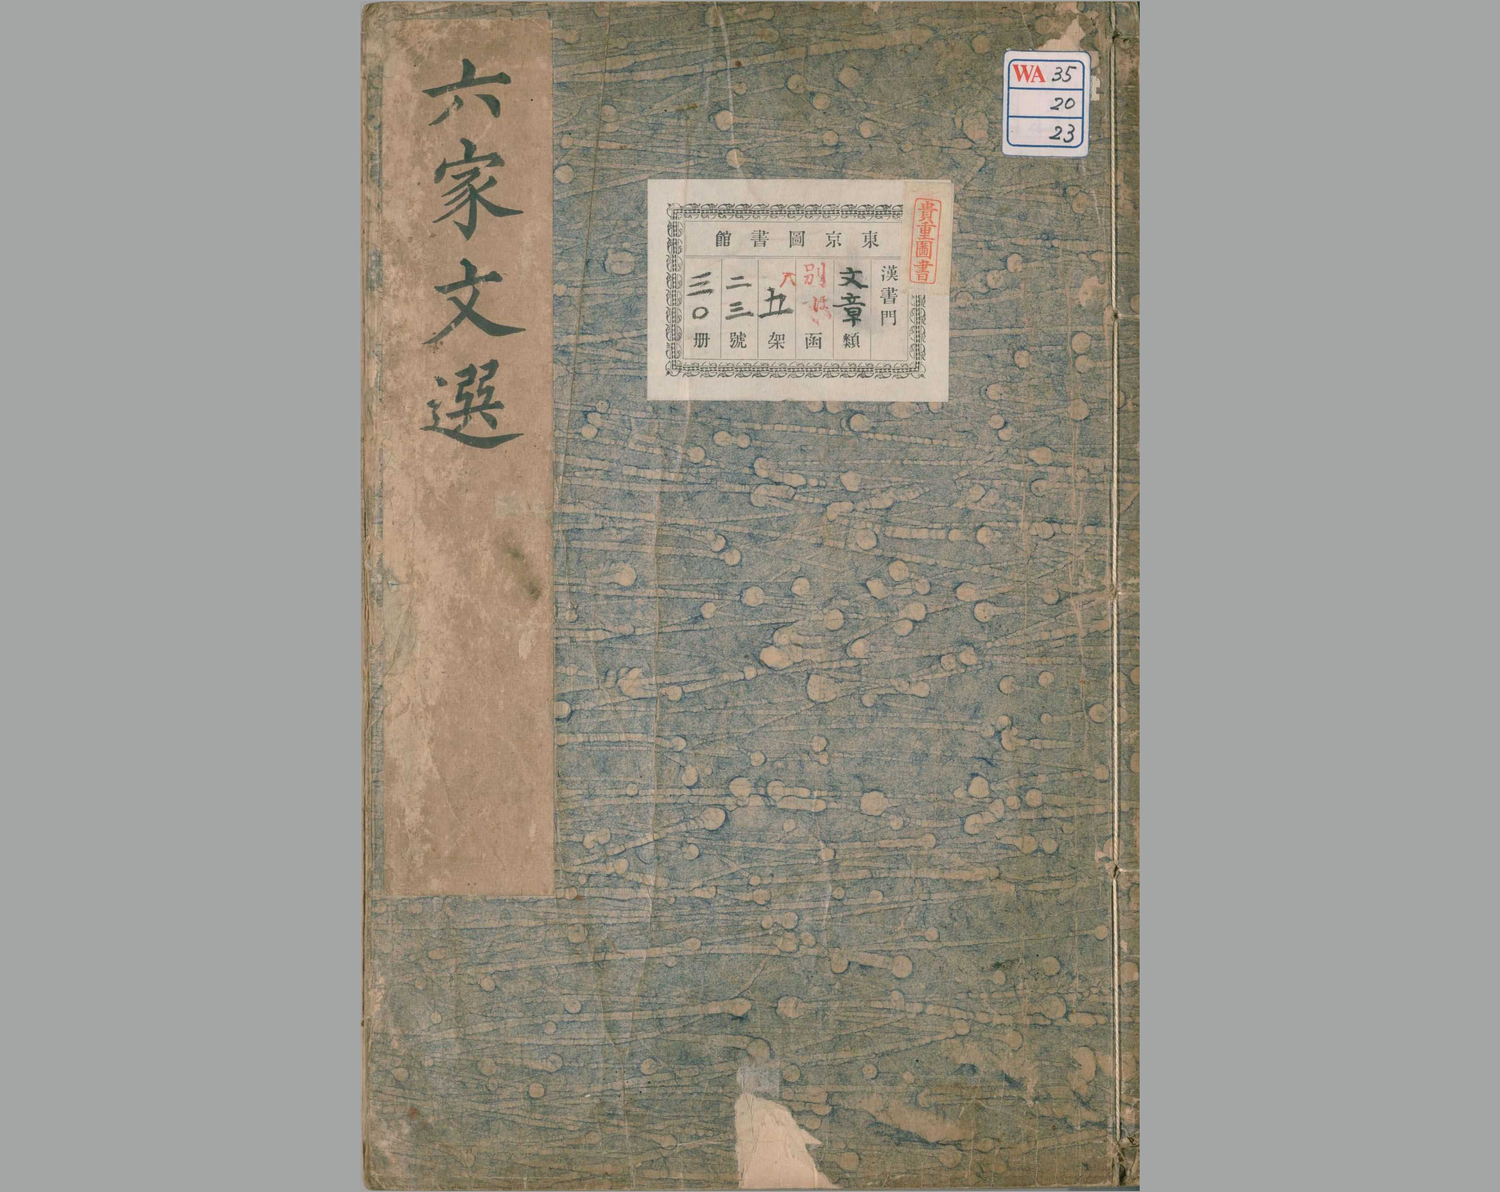 六家文選
WA 35
20
23
貴重圖書
東京圖書館
漢書門
文章類
別 函
五架
二三號
三〇册